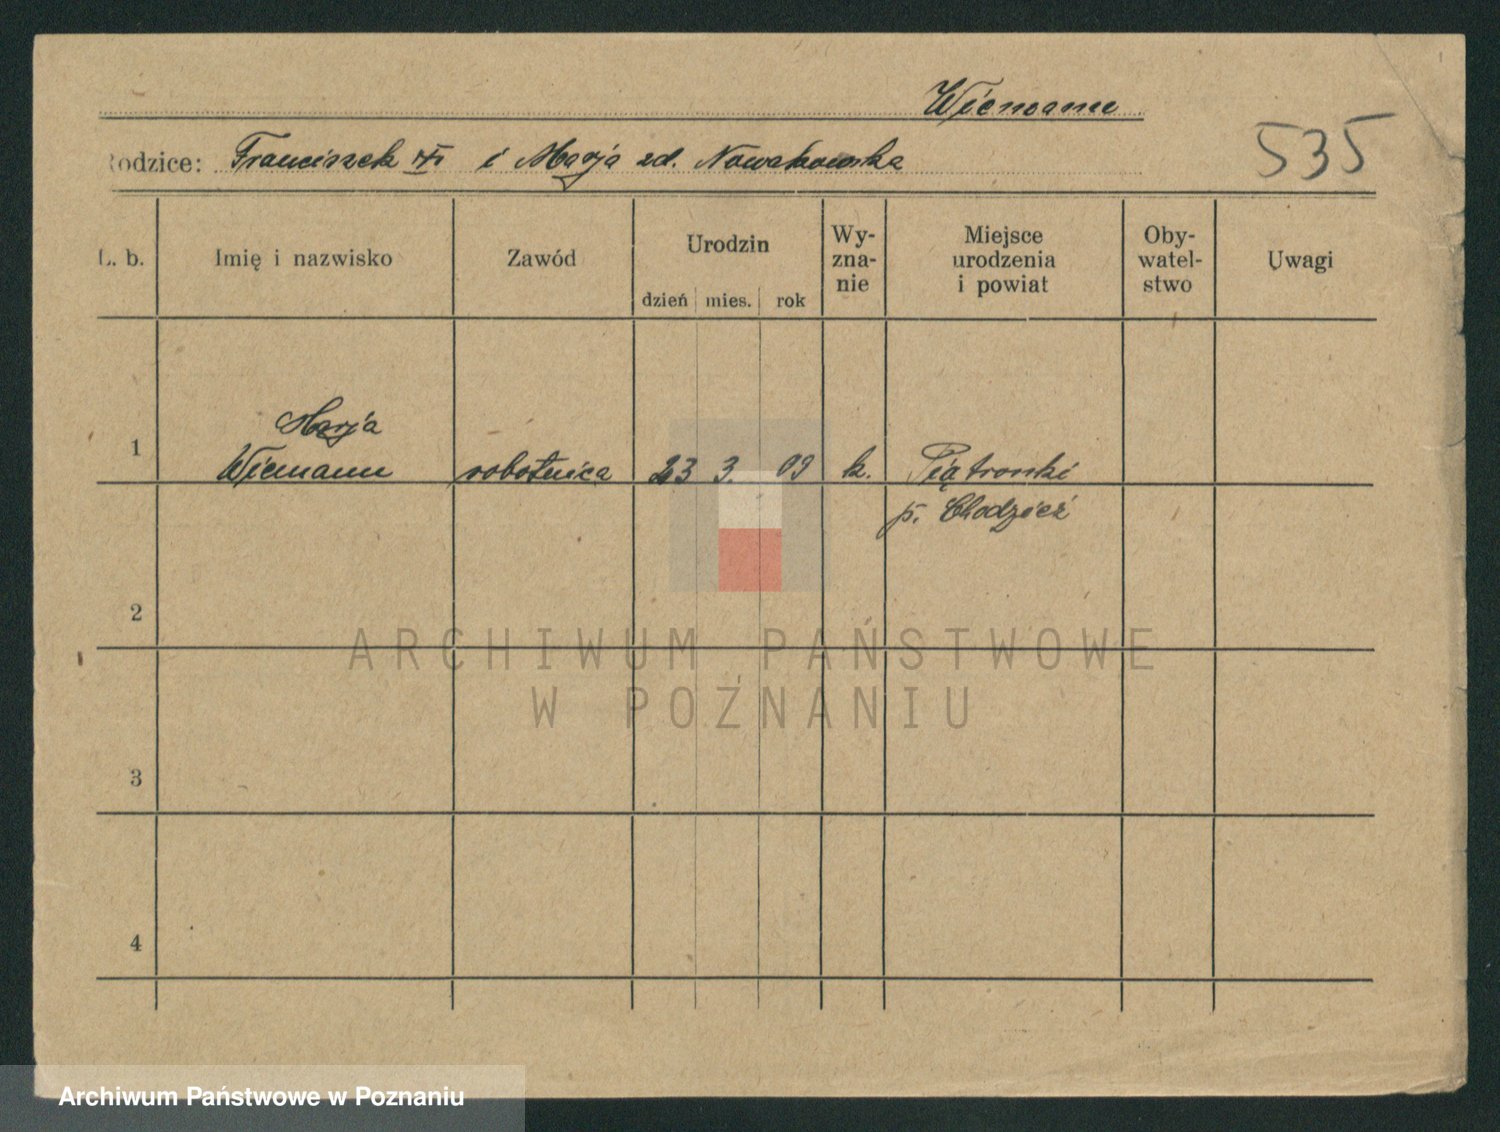 Wiemann
Rodzice: Franciszek i Marja zd. Nowakowska
535
L. b.
Imię i nazwisko
Zawód
Urodzin
dzień mies. rok
Wy-
zna-
nie
Miejsce
urodzenia
i powiat
Oby-
watel-
stwo
Uwagi
1
Marja
Wiemann
robotnica
23 3. 09
k.
Piątronki
p. Chodzież
2
3
4
ARCHIWUM PAŃSTWOWE
W POZNANIU
Archiwum Państwowe w Poznaniu